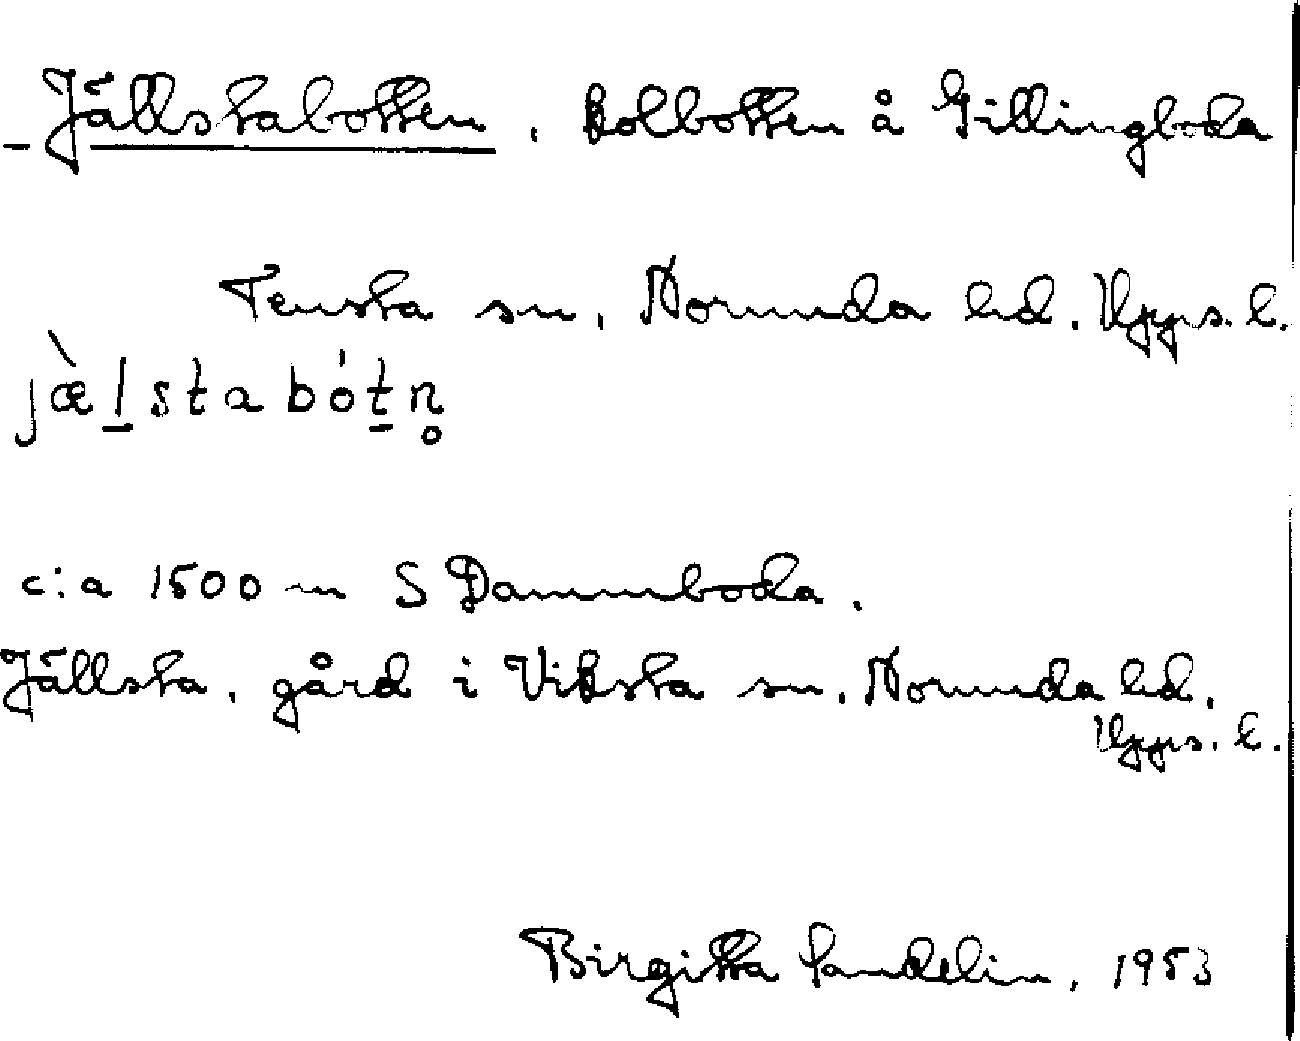 Jällstabotten, kolbotten å Gillingboda
Tensta sn, Norunda hd. Upps. l.
jæ̀l̠stabót̠n̥
c:a 1500 m S Dammboda.
Jällsta, gård i Viksta sn, Norunda hd,
Upps. l.
Birgitta Sandelin, 1953